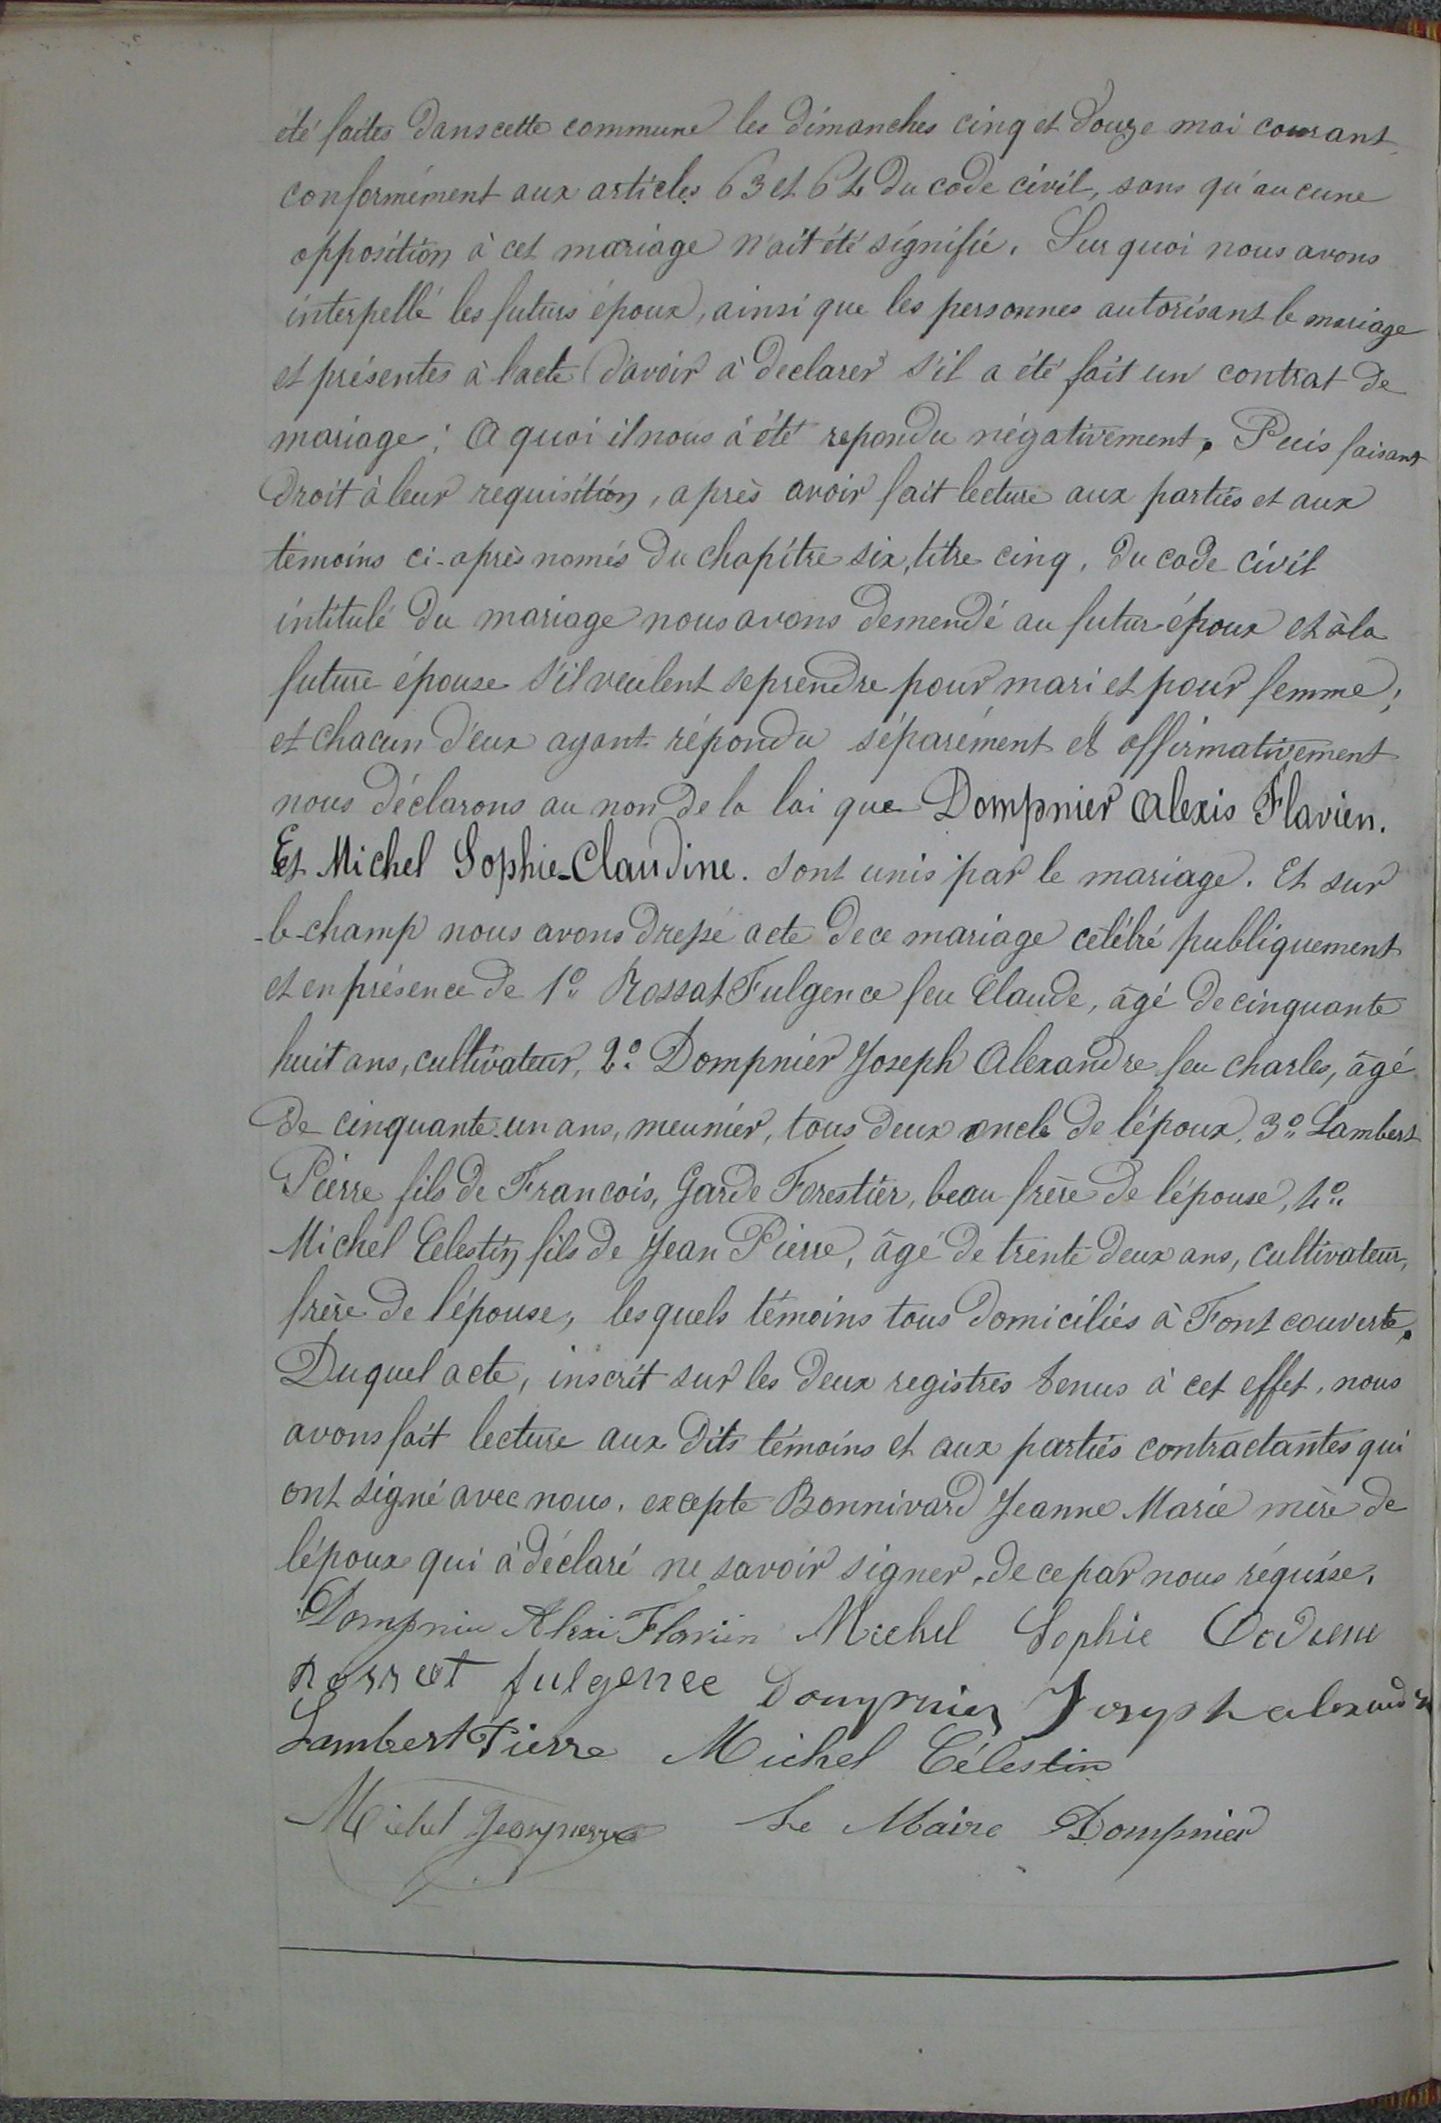 été faites dans cette commune les dimanches cinq et douze mai courant
conformément aux articles 63 et 64 du code civil, sans qu'aucune
opposition à cet mariage n'ait été signifié. Sur quoi nous avons
interpellé les futurs époux, ainsi que les personnes autorisant le mariage
et présentes à l'acte d'avoir à declarer s'il a été fait un contrat de
mariage; a quoi il nous à été repondu négativement. Puis faisant
droit à leur requisition, après avoir fait lecture aux parties et aux
témoins ci-après només du chapitre six, titre cinq, du code civil
intitulé du mariage nous avons demendé au futur époux et à la
future épouse s'il veulent se prendre pour mari et pour femme;
et chacun d'eux ayant répondu séparément et affirmativement
nous déclarons au non de la loi que Dompnier Alexis Flavien.
Et Michel Sophie-Claudine. sont unis par le mariage. Et sur
-le-champ nous avons dressé acte de ce mariage célébré publiquement
et en présence de 1o Rossat Fulgence feu Claude, âgé de cinquante
huit ans, cultivateur, 2o Dompnier Joseph Alexandre feu charles, âgé
de cinquante-un ans, meunier, tous deux oncle de l'époux, 3o Lambert
Pierre fils de Francois, Garde Forestier, beau frère de l'épouse, 4o
Michel Celestin fils de Jean Pierre, âgé de trente deux ans, cultivateur,
frère de l'épouse, lesquels témoins tous domiciliés à Fontcouverte.
Duquel acte, inscrit sur les deux registres tenus à cet effet, nous
avons fait lecture aux dits témoins et aux parties contractantes qui
ont signé avec nous, excepte Bonnivard Jeanne Marie mère de
l'époux qui à déclaré ne savoir signer, de ce par nous réquise.
Dompnier Alexi Flavien Michel Sophie
Rossat fulgence Dompnier Joseph alexandre
Lambert Pierre Michel Célestin
Michel Jeanpierre Le Maire Dompnier